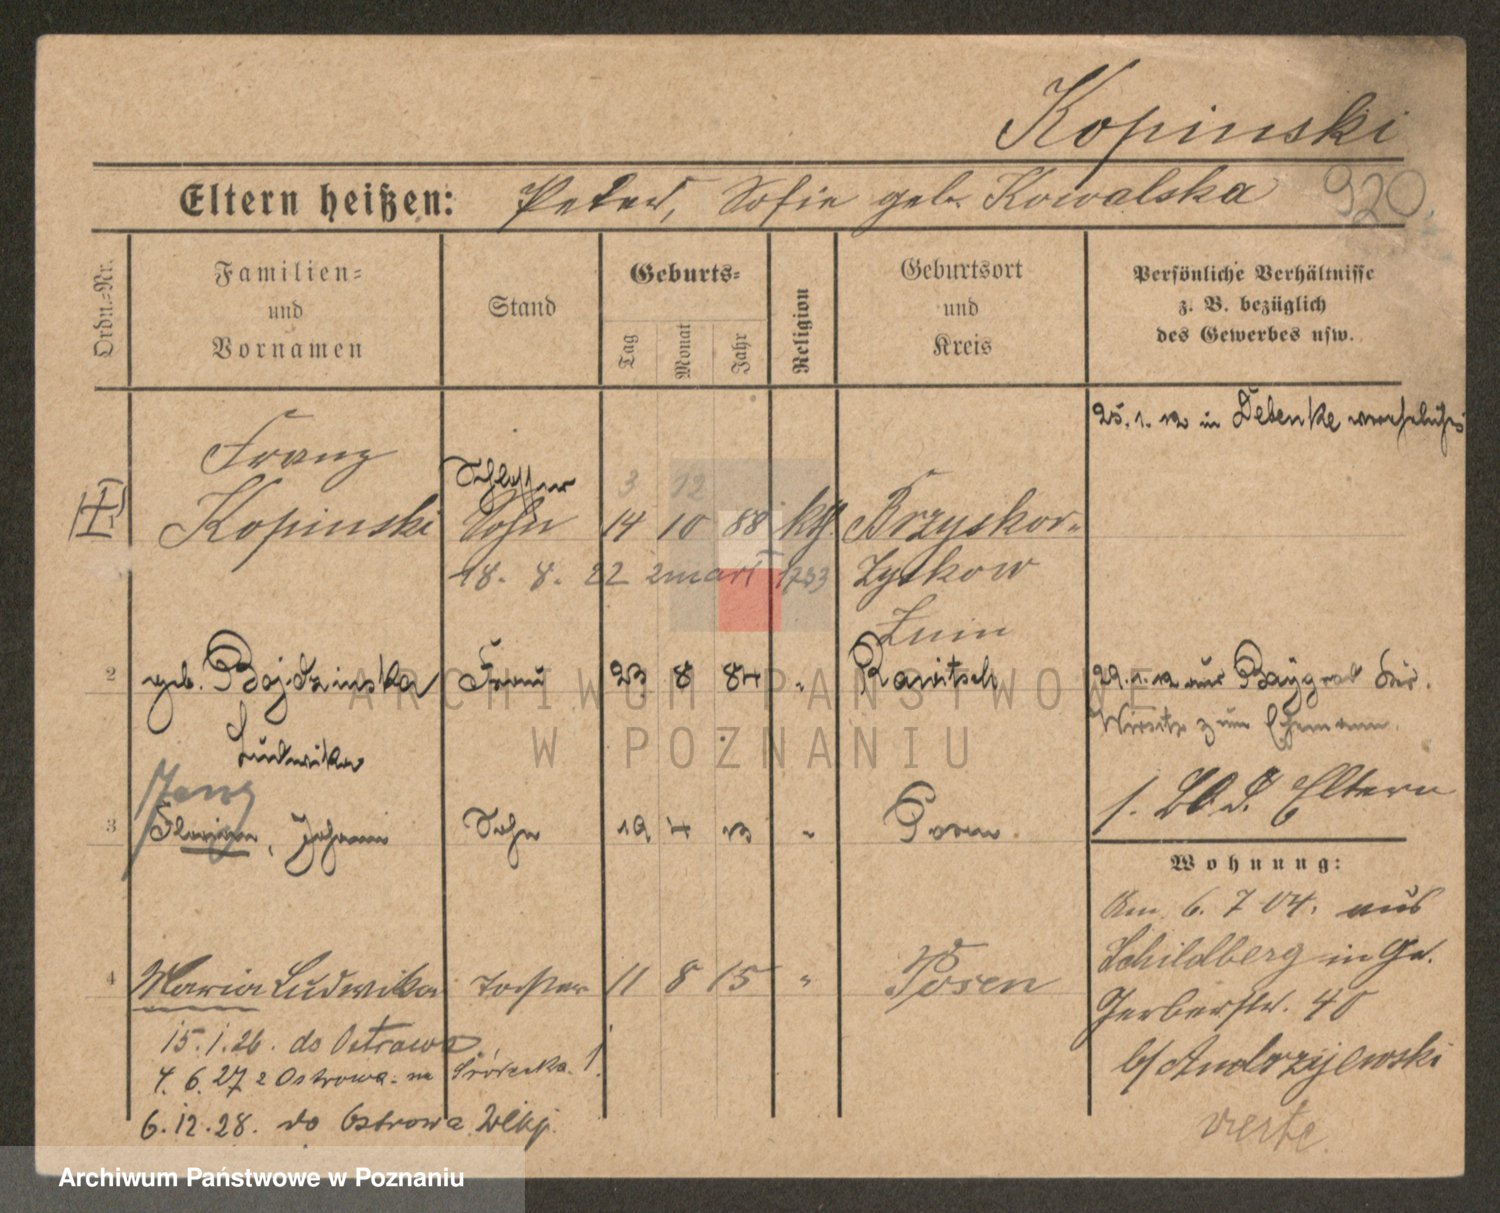 Kopinski
Eltern heißen: Peter, Sofie geb. Kowalska
920.
Ordn.=Nr.
Familien=
und
Vornamen
Stand
Geburts=
Tag
Monat
Jahr
Religion
Geburtsort
und
Kreis
Persönliche Verhältnisse
z. B. bezüglich
des Gewerbes usw.
25. 1. 12 in Debenke
Franz
Schlosser 3 12
Kopinski Sohn 14 10 88 kth. Brzyskor=
18. 8. 22 zmarł 1733 zystkow
Znin
2 geb. Bojdzinska Frau 23 8 84 " Rawitsch 29. 1. 12 aus
Ludwika
Wirsitz zum Ehemann.
3 Florian, Johann Sohn 19 4 13 " Posen.
f. Bd. Eltern
Wohnung:
Am 6. 7 04. aus
Schildberg in Gr.
Gerberstr. 40
b/ Andrzijewski
4 Maria Ludwika Tochter 11 8 15 " Posen
15. 1. 26. do Ostrowa
4. 6. 27 z Ostrowa na Śródecka 1
6. 12. 28. do Ostrowa Wlkp.
verte.
ARCHIWUM PAŃSTWOWE
W POZNANIU
Archiwum Państwowe w Poznaniu